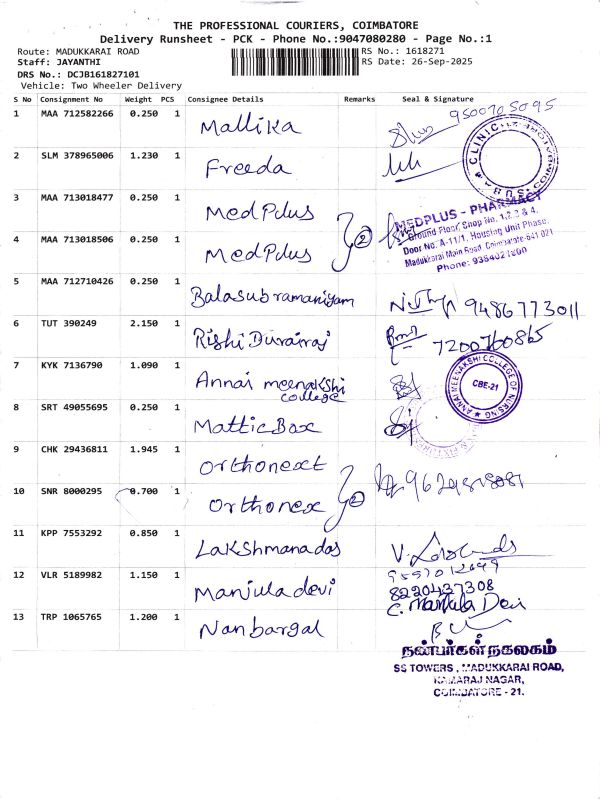 THE PROFESSIONAL COURIERS, COIMBATORE
Delivery Runsheet - PCK - Phone No.:9047080280 - Page No.:1
Route: MADUKKARAI ROAD
RS No.: 1618271
Staff: JAYANTHI
RS Date: 26-Sep-2025
DRS No.: DCJB161827101
Vehicle: Two Wheeler Delivery
S No Consignment No Weight PCS Consignee Details Remarks Seal & Signature
1 MAA 712582266 0.250 1 Mallika 9500705095
CLINIC
2 SLM 378965006 1.230 1 Freeda
3 MAA 713018477 0.250 1 MedPlus
4 MAA 713018506 0.250 1 MedPlus 2
MEDPLUS - PHARMACY
Ground Floor, Shop No. 1,2,3 & 4,
Door No. A-11/1, Housing Unit Phase,
Madukkarai Main Road, Coimbatore-641 021
Phone:
5 MAA 712710426 0.250 1 Balasubramaniyam 9486773011
6 TUT 390249 2.150 1 Rishi Durairaj 7200760865
7 KYK 7136790 1.090 1 Annai meenakshi
college
ANNAI MEENAKSHI COLLEGE OF NURSING
CBE-21
8 SRT 49055695 0.250 1 Mattic Box
9 CHK 29436811 1.945 1 Orthonext
10 SNR 8000295 0.700 1 Orthonex 2
11 KPP 7553292 0.850 1 Lakshmanadas
12 VLR 5189982 1.150 1 Manjula devi
8220437308
C. Manjula Devi
13 TRP 1065765 1.200 1 Nanbargal
நண்பர்கள் நகலகம்
SS TOWERS, MADUKKARAI ROAD,
KAMARAJ NAGAR,
COIMBATORE - 21.